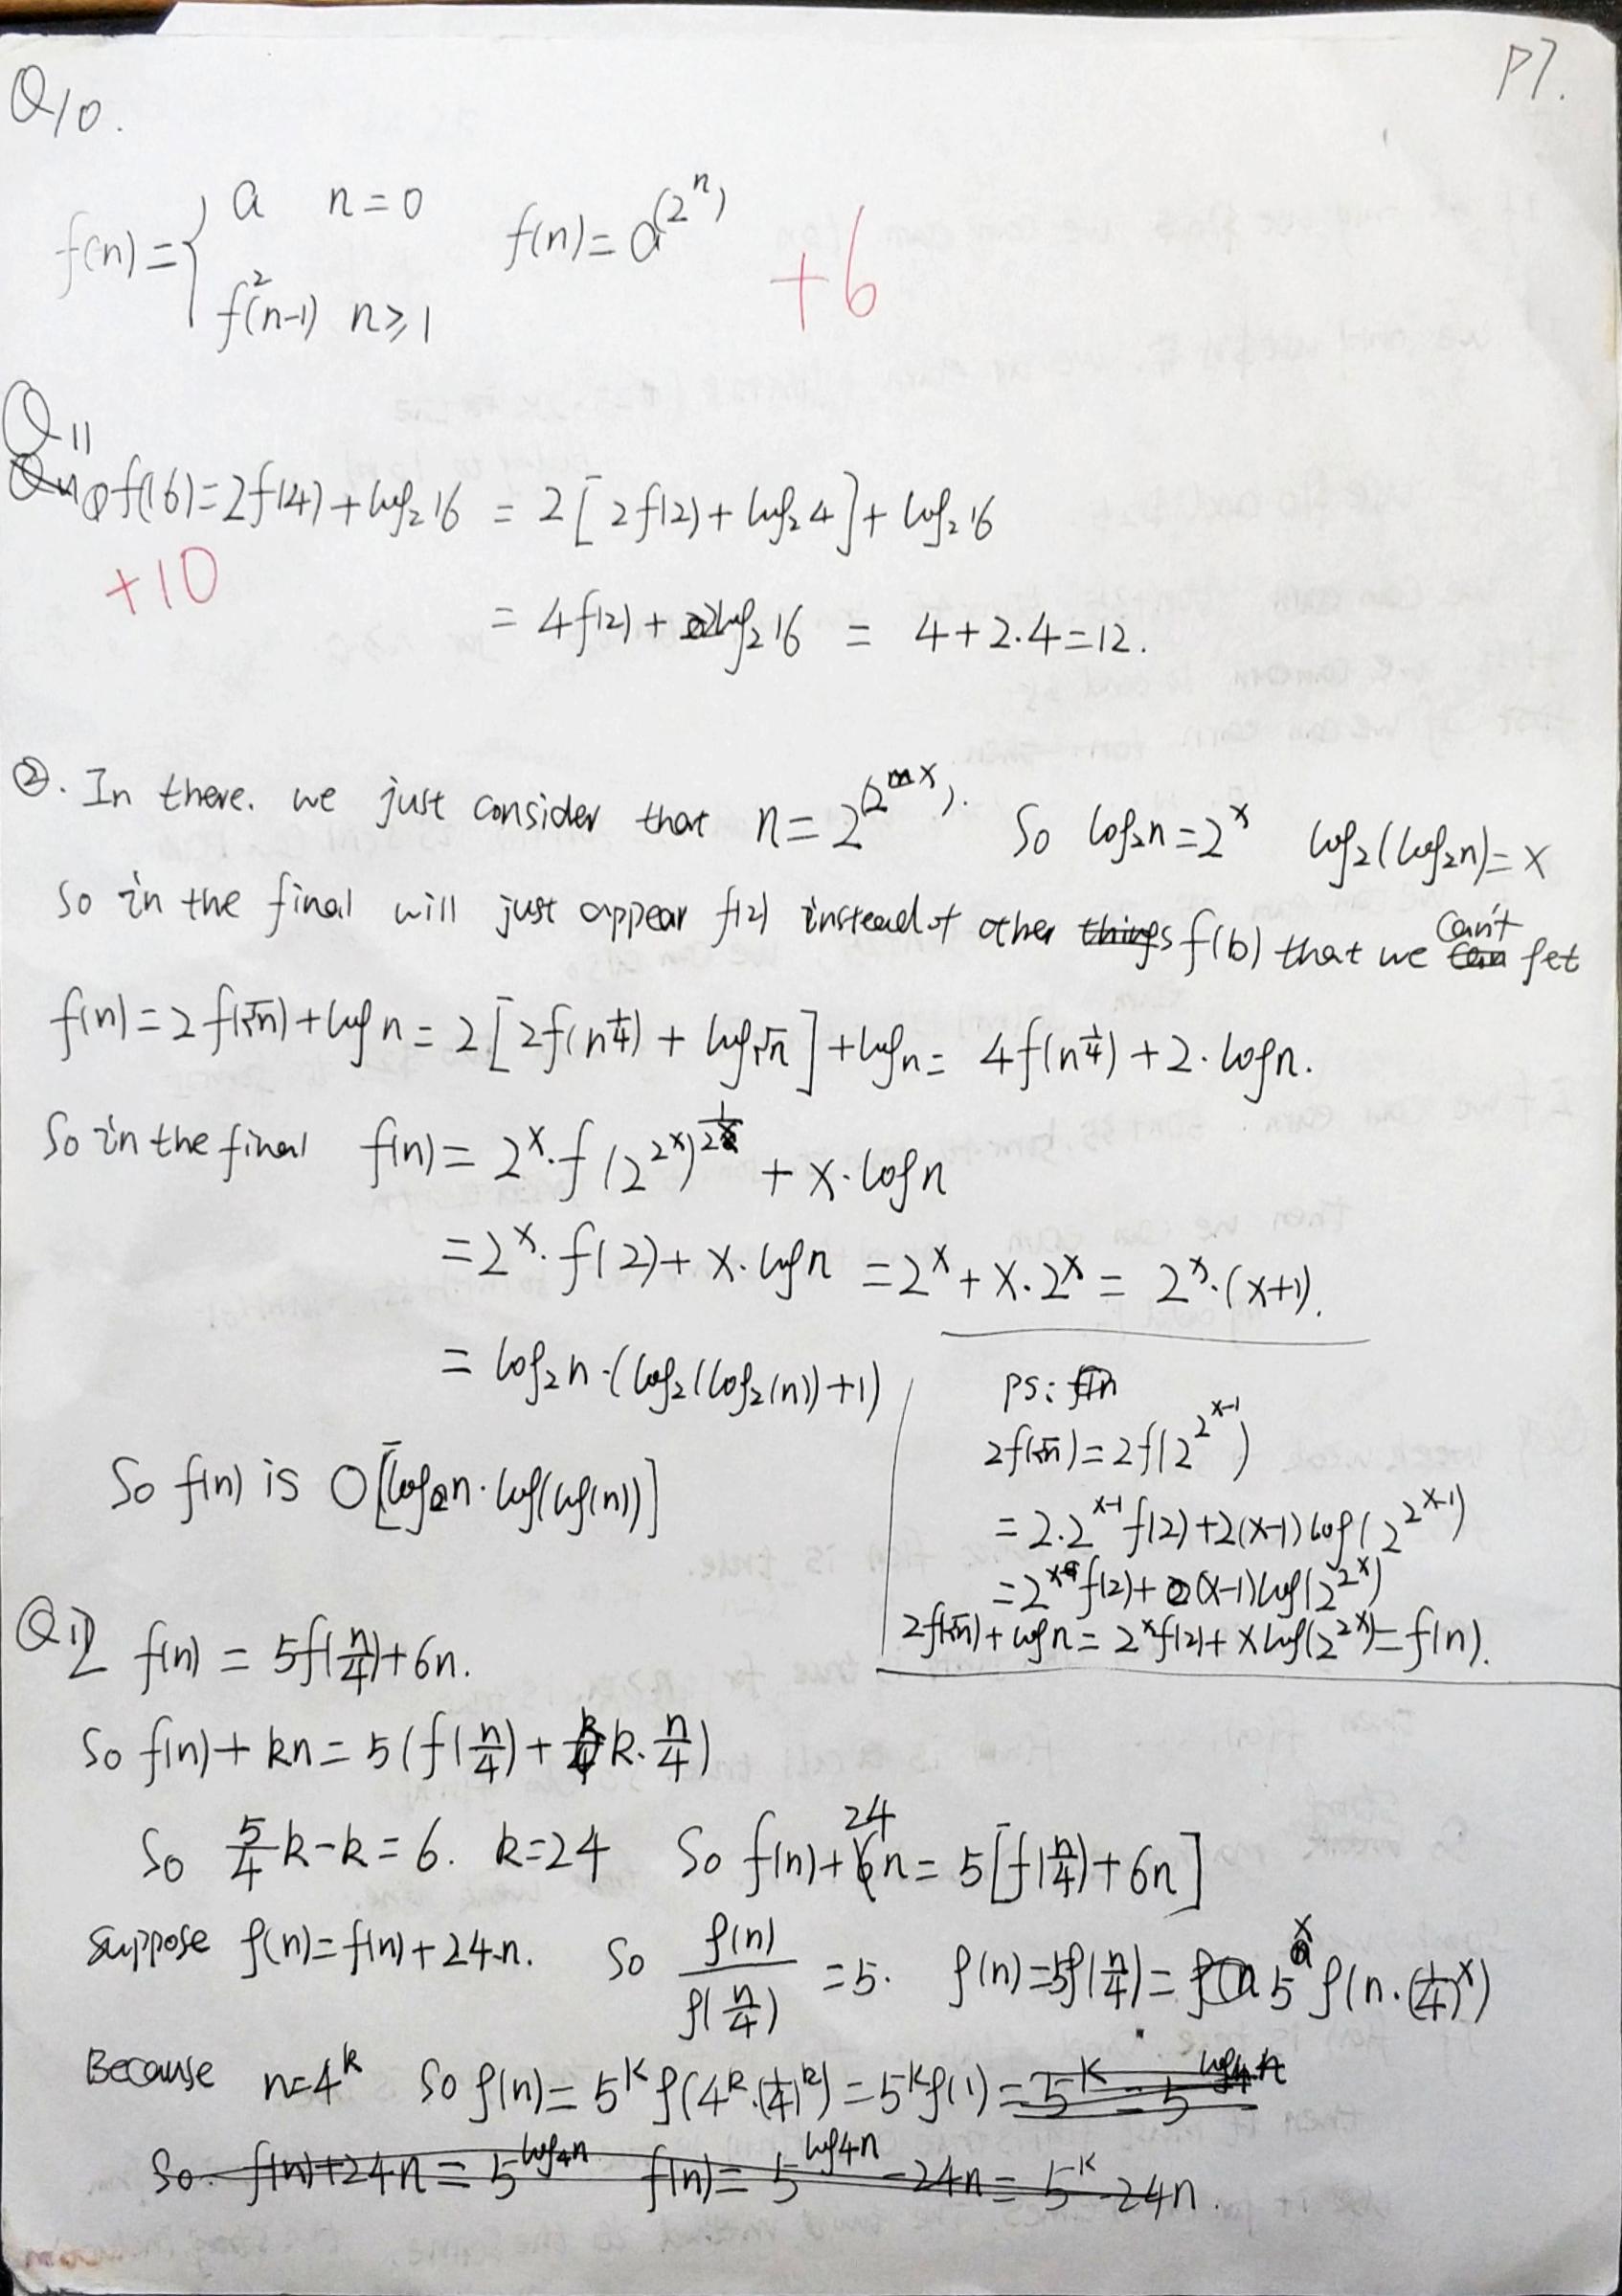 P7.
Q10.
f(n) = { a n=0
f²(n-1) n≥1
f(n) = a^(2^n)
+6
Q11
① f(16) = 2f(4) + log₂16 = 2[2f(2) + log₂4] + log₂16
+10
= 4f(2) + 2log₂16 = 4+2·4=12.
②. In there. we just consider that n = 2^(2^x). So log₂n = 2^x log₂(log₂n) = x
So in the final will just appear f(2) instead of other f(b) that we can't get
f(n) = 2f(√n) + log n = 2[2f(n^¼) + log√n] + log n = 4f(n^¼) + 2·log n.
So in the final f(n) = 2^x·f(2^2^x)^(1/2^x) + x·log n
= 2^x·f(2) + x·log n = 2^x + x·2^x = 2^x·(x+1).
= log₂n·(log₂(log₂(n))+1)
So f(n) is O[log₂n·log(log(n))]
ps:
2f(√n) = 2f(2^2^(x-1))
= 2·2^(x-1) f(2) + 2(x-1) log(2^2^(x-1))
= 2^x f(2) + (x-1) log(2^2^x)
2f(√n) + log n = 2^x f(2) + x log(2^2^x) = f(n).
Q12 f(n) = 5f(n/4) + 6n.
So f(n) + kn = 5(f(n/4) + k·n/4)
So 5/4 k - k = 6. k=24 So f(n) + 24n = 5[f(n/4) + 6n]
Suppose g(n) = f(n) + 24·n. So g(n)/g(n/4) = 5. g(n) = 5g(n/4) = 5^x g(n·(1/4)^x)
Because n=4^k So g(n) = 5^k g(4^k·(1/4)^k) = 5^k g(1) = 5^k = 5^log₄n
So. f(n)+24n = 5^log₄n f(n) = 5^log₄n - 24n = 5^k - 24n.